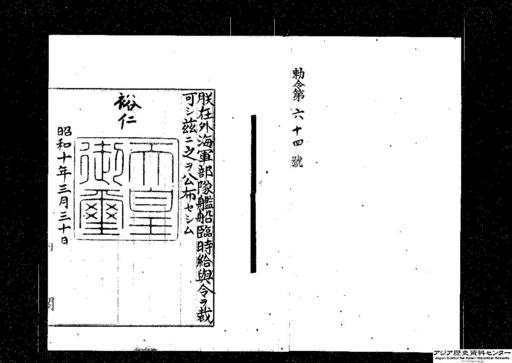 勅令第六十四號
朕在外海軍部隊艦船臨時給與令ヲ裁
可シ茲ニ之ヲ公布セシム
裕仁
天皇
御璽
昭和十年三月三十日
内
閣
アジア歴史資料センター
Japan Center for Asian Historical Records